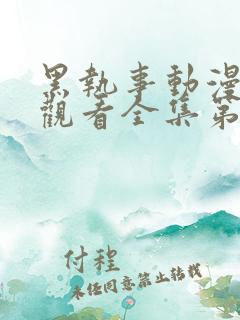 黑執事動漫
觀看全集第
付程
未经同意禁止转载